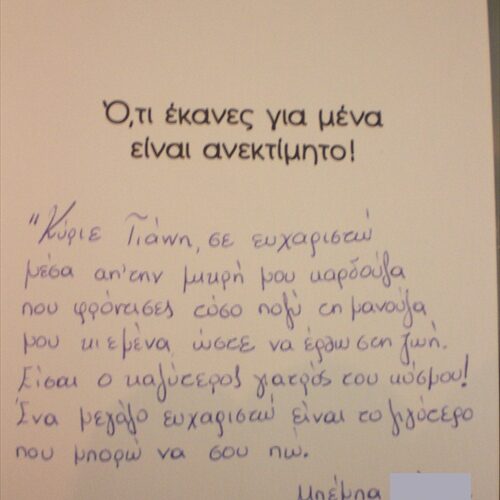 Ό,τι έκανες για μένα
είναι ανεκτίμητο!
"Κύριε Γιάννη, σε ευχαριστώ
μέσα απ'την μικρή μου καρδούλα
που φρόντισες τόσο πολύ τη μανούλα
μου κι εμένα ώστε να έρθω στη ζωή.
Είσαι ο καλύτερος γιατρός του κόσμου!
Ένα μεγάλο ευχαριστώ είναι το λιγότερο
που μπορώ να σου πω.
Μπέμπα